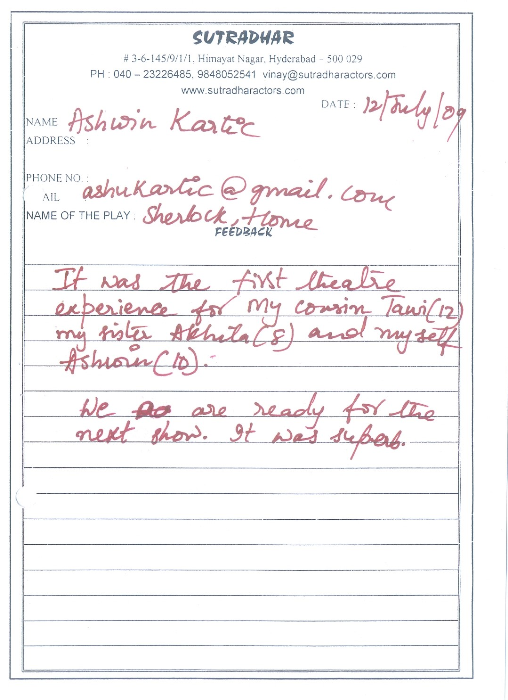 SUTRADHAR
# 3-6-145/9/1/1, Himayat Nagar, Hyderabad - 500 029
PH : 040 – 23226485, 9848052541 vinay@sutradharactors.com
www.sutradharactors.com
DATE : 12/July/09
NAME Ashwin Kartic
ADDRESS :
PHONE NO. :
AIL ashukartic@gmail.com
NAME OF THE PLAY : Sherlock, Home
FEEDBACK
It was the first theatre
experience for my cousin Tanvi(12)
my sister Akhila(8) and myself
Ashwin(10).
We are ready for the
next show. It was superb.